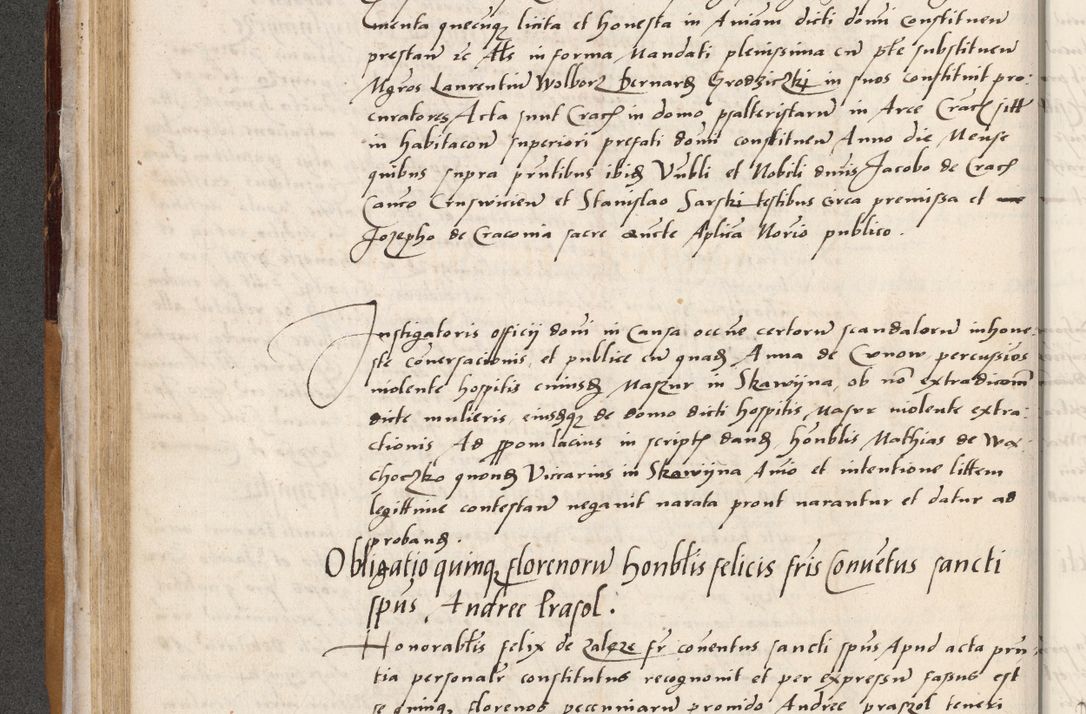 menta quecunq licita et honesta in Aniam dicti domi constituen
prestan &c Alls in forma Mandati plenissima cu pte substituen
Mgros Laurentiu Wolborz Bernard Grodziczki in suos constituit pro
curatores Acta sunt Crac in domo psalteristaru in Arce Crac sitt
in habitacon superiori prefati domi constituen Anno die Mense
quibus supra pntibus ibid Vnbli et Nobili dnis Jacobo de Crac
Canco Cruswicien et Stanislao Sarski testibus circa premissa et
Jozepho de Cracouia sacre aucte Aplica Norio publico.
Instigatoris officij domi in Causa occne certoru scandaloru inhone
ste conuersacionis, et publice cu quad Anna de Cunow, percussios
violente hospitis cuiusd Maszur in Skawijna, ob no extradicom
dicte mulieris, eiusdq de domo dicti hospitis Masur violente extra
ctionis Ad ppom lacius in script dand, honblis Mathias de Wa
choczko quond Viccarius in Skawijna Anio et intentione littem
legittime contestan negauit narata prout narantur et datur ad
proband.
Obligatio quinq florenoru honblis felicis fris Conuetus sancti
spus Andree Prasol.
Honorablis felix de Zaleze fr conuentus sancti spus Apud acta pn
tia personalr constitutus recognouit et per expressum fassus est
se quinq florenos pecuniaru prouido Andree praszol teneri